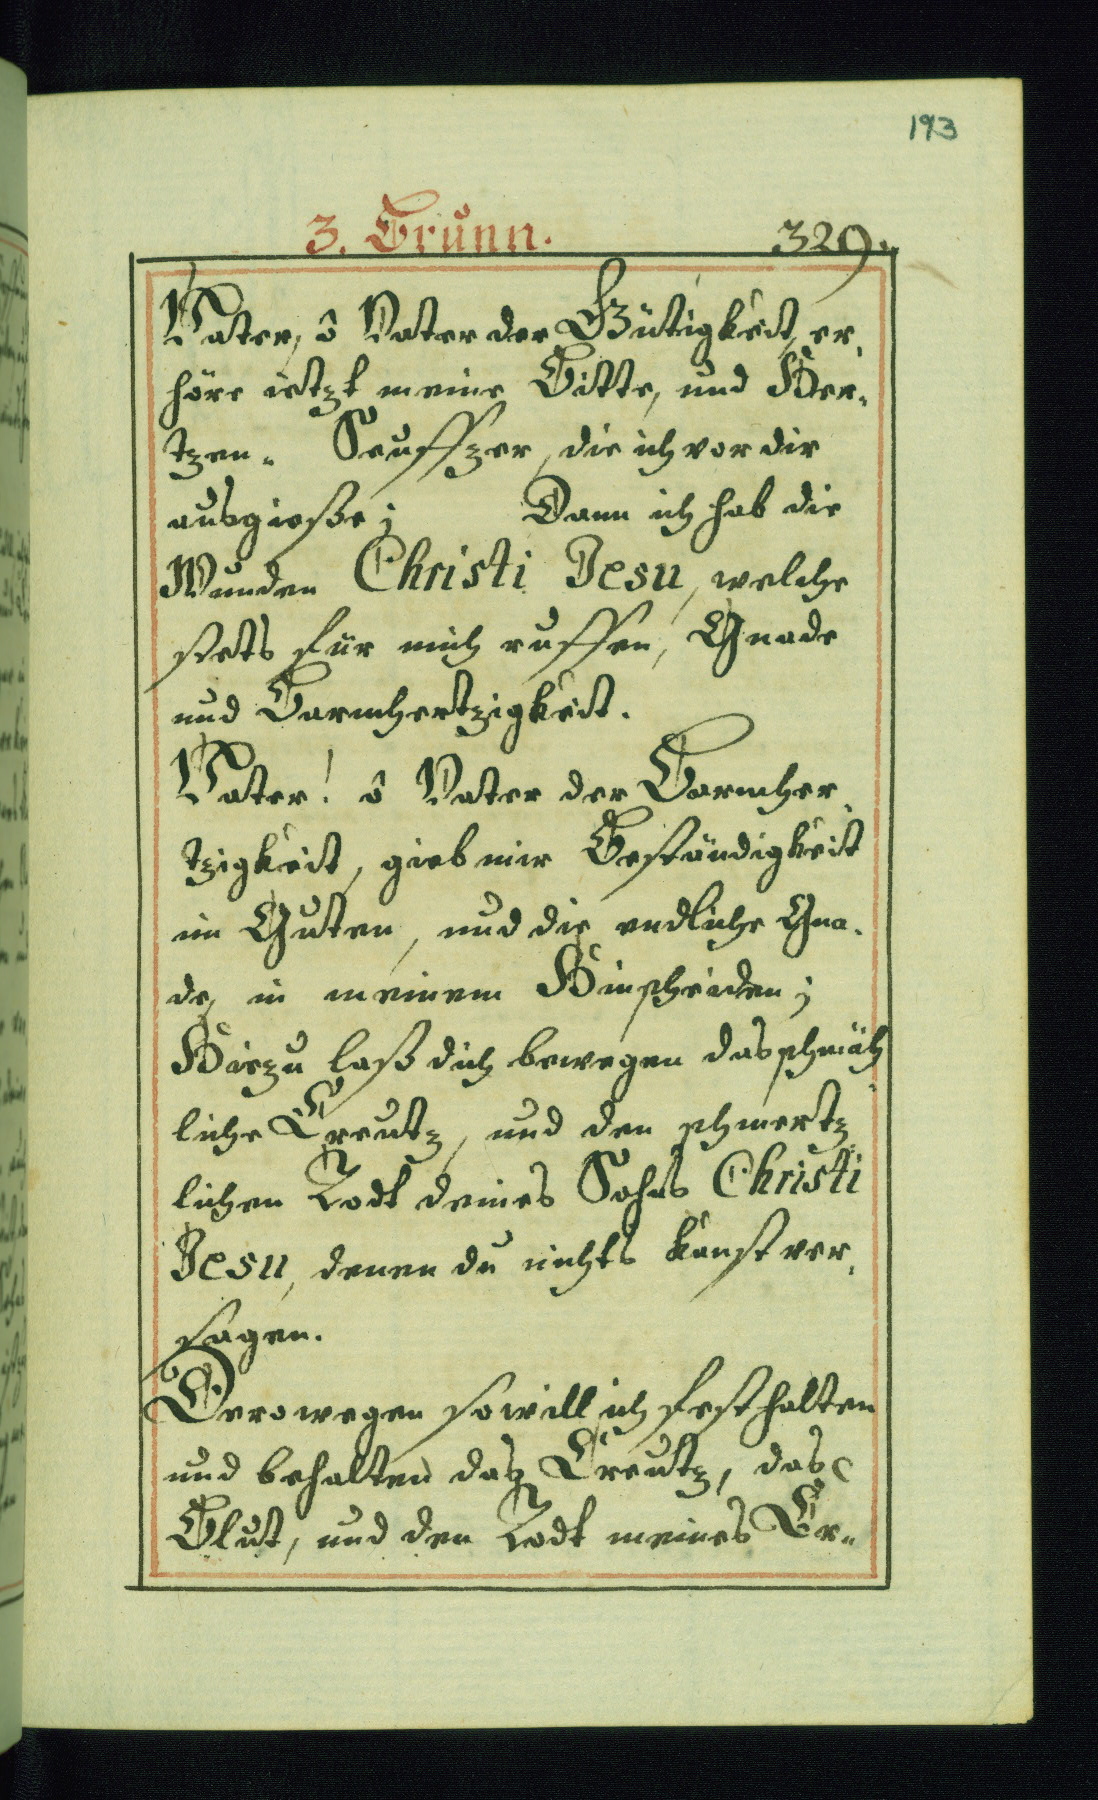 193
3. Brunn. 329.
Vater, ô Vater der Gütigkeit, er,
höre ietzt meine Bitte, und Her„
tzen„ Seuffzer, die ich vor dir
ausgieße; Dann ich hab die
Wunden Christi Jesu, welche
stets für mich ruffen, Gnade
und Barmhertzigkeit.
Vater! ô Vater der Barmher,
tzigkeit, gieb mir Beständigkeit
im Guten, und die endliche Gna„
de, in meinem Hinscheiden;
Hiezu laß dich bewegen das schmäh„
liche Creutz, und den schmertz„
lichen Todt deines Sohns Christi
Jesu, denen du nichts kanst ver,
sagen.
Derowegen so will ich fest halten
und behalten daß Creutz, das
Blut, und den Todt meines Er„